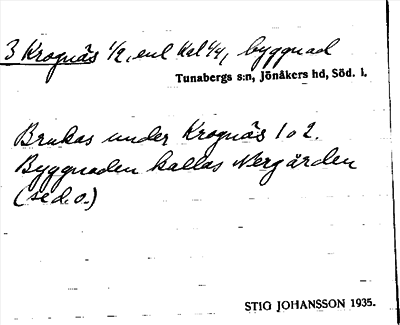 3 Krognäs 1/2, enl kal 1/4, byggnad
Tunabergs s:n, Jönåkers hd, Söd. l.
Brukas under Krognäs 1 o 2.
Byggnaden kallas Nergården
(se d.o.)
STIG JOHANSSON 1935.